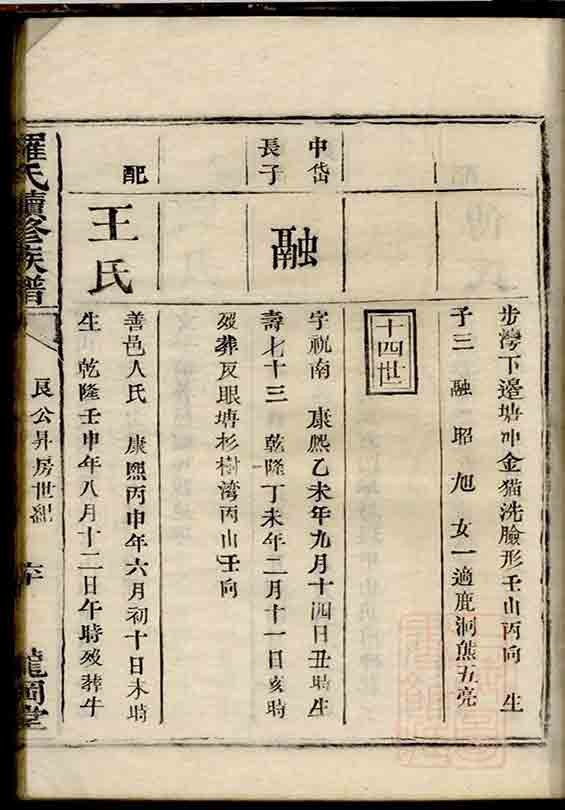 步灣下邉塘冲金猫洗臉形壬山丙向　生
子三　融　昭　旭　女一適鹿洞熊五亮
十四世
中岱
長子
融
字祝南　康熙乙未年九月十四日丑時生
壽七十三　乾隆丁未年二月十一日亥時
殁葬反眼塘杉樹湾丙山壬向
配
王氏
善邑人氏　康熙丙申年六月初十日未時
生　乾隆壬申年八月十二日午時殁葬牛
羅氏續修族譜
艮公昇房世紀
龍岡堂